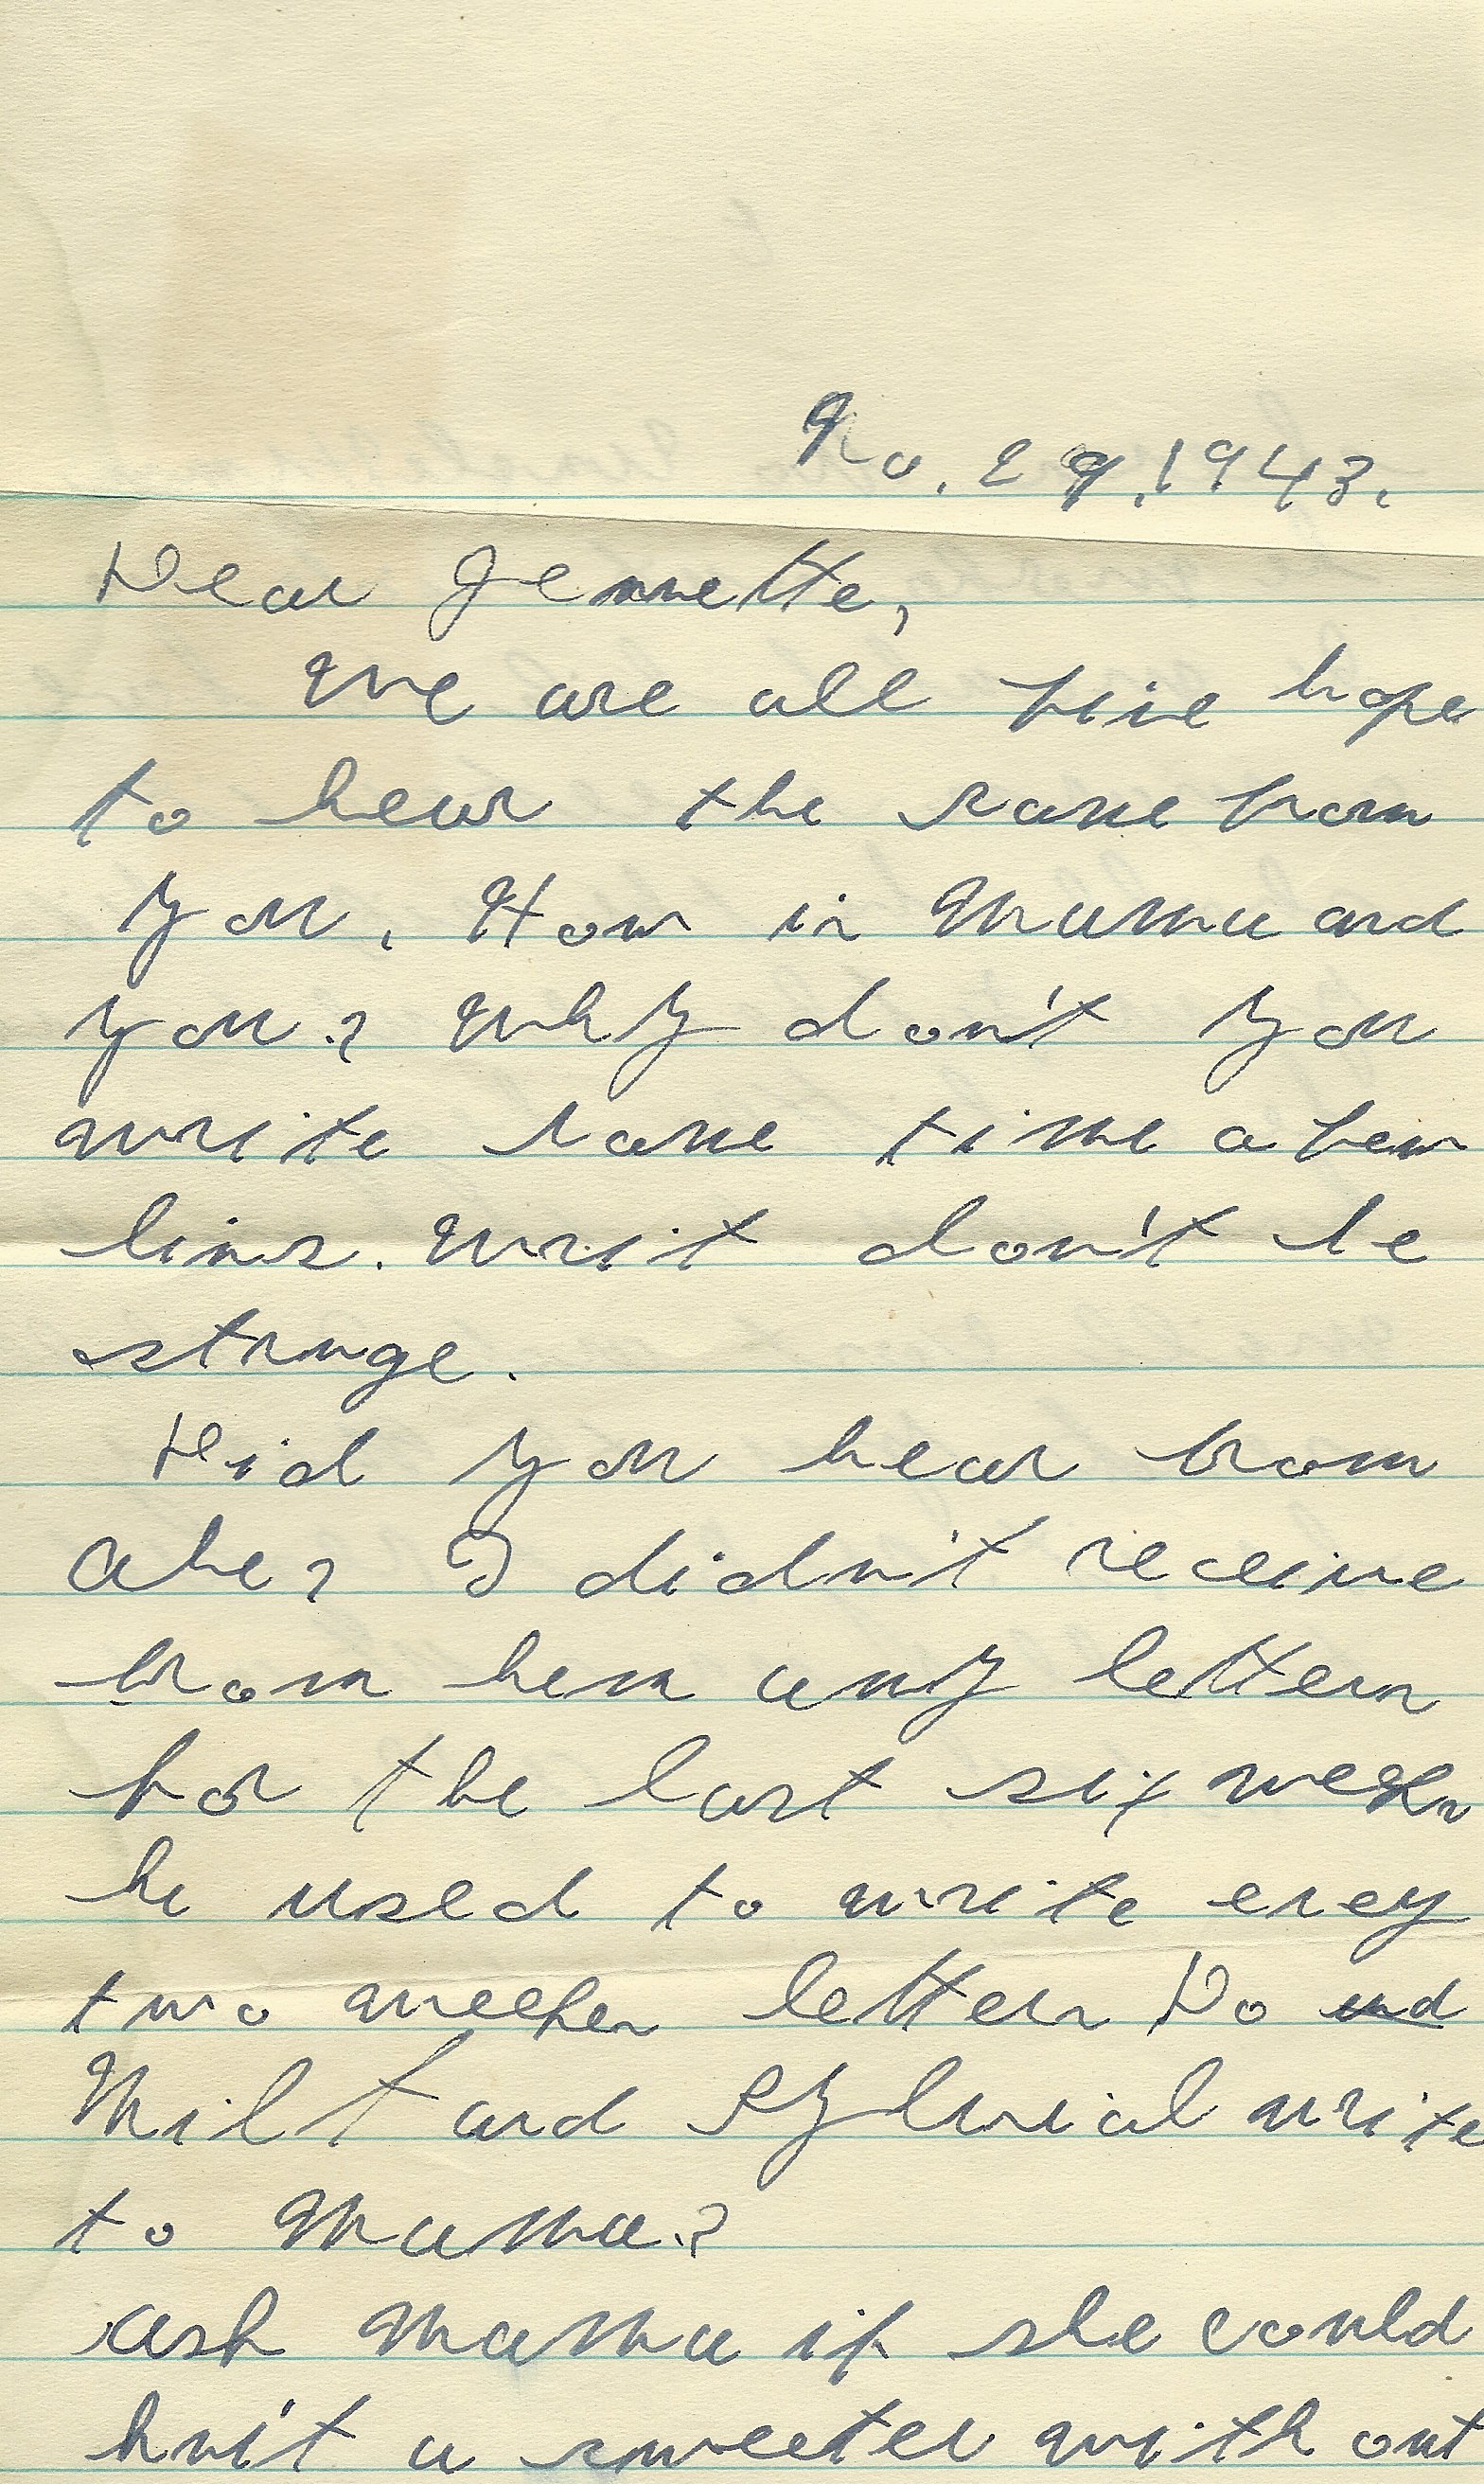 No. 29, 1943.
Dear Jennette,
We are all fine hope
to hear the same from
you. How is Mama and
you? Why don't you
write some time a few
lins. Writ don't be
strange.
Did you hear from
Abe? I didn't receive
from hem any letters
for the last six weeks
he used to write evey
two weekes letters Do and
Milt and Sylvial write
to Mama?
ask Mama if she could
knit a sweeter with out